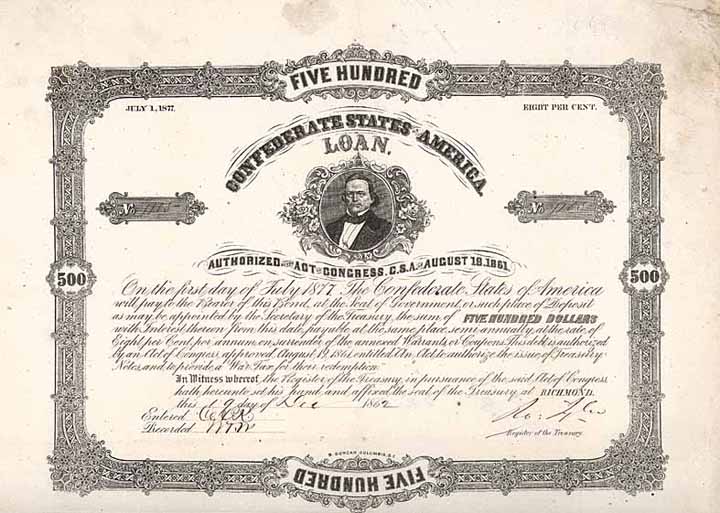 FIVE HUNDRED
JULY 1, 1877.
EIGHT PER CENT.
CONFEDERATE STATES OF AMERICA.
LOAN.
No
No
AUTHORIZED BY THE ACT OF CONGRESS, C.S.A. OF AUGUST 19, 1861.
500
500
On the first day of July 1877. The Confederate States of America
will pay to the Bearer of this Bond, at the Seat of Government, or such place of Deposit
as may be appointed by the Secretary of the Treasury, the sum of FIVE HUNDRED DOLLARS
with Interest thereon from this date, payable at the same place semi-annually, at the rate of
Eight per Cent. per annum, on surrender of the annexed Warrants, or Coupons. This debt is authorized
by an Act of Congress, approved August 19, 1861, entitled An Act to authorize the issue of Treasury
Notes, and to provide a War Tax for their redemption.
In Witness whereof, the Register of the Treasury, in pursuance of the said Act of Congress
hath hereunto set his hand, and affixed the seal of the Treasury, at RICHMOND.
this 9 day of Dec 1862
Entered
Recorded
Register of the Treasury.
B. DUNCAN, COLUMBIA, S.C.
FIVE HUNDRED